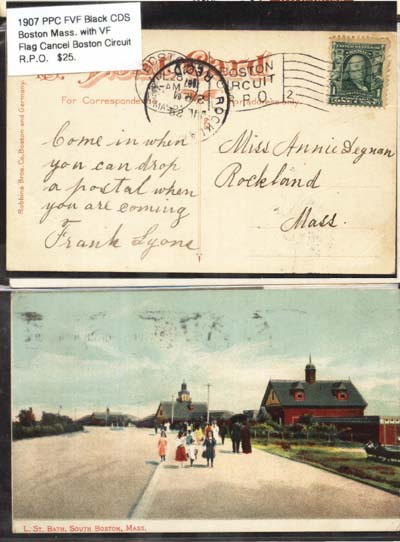 1907 PPC FVF Black CDS
Boston Mass. with VF
Flag Cancel Boston Circuit
R.P.O. $25.
Post Card
For Correspondence
For Address only
BOSTON
CIRCUIT
R.P.O.
2
Robbins Bros. Co., Boston and Germany.
Come in when
you can drop
a postal when
you are coming
Frank Lyons
Miss Annie Degnan
Rockland
Mass.
L. St. Bath, South Boston, Mass.